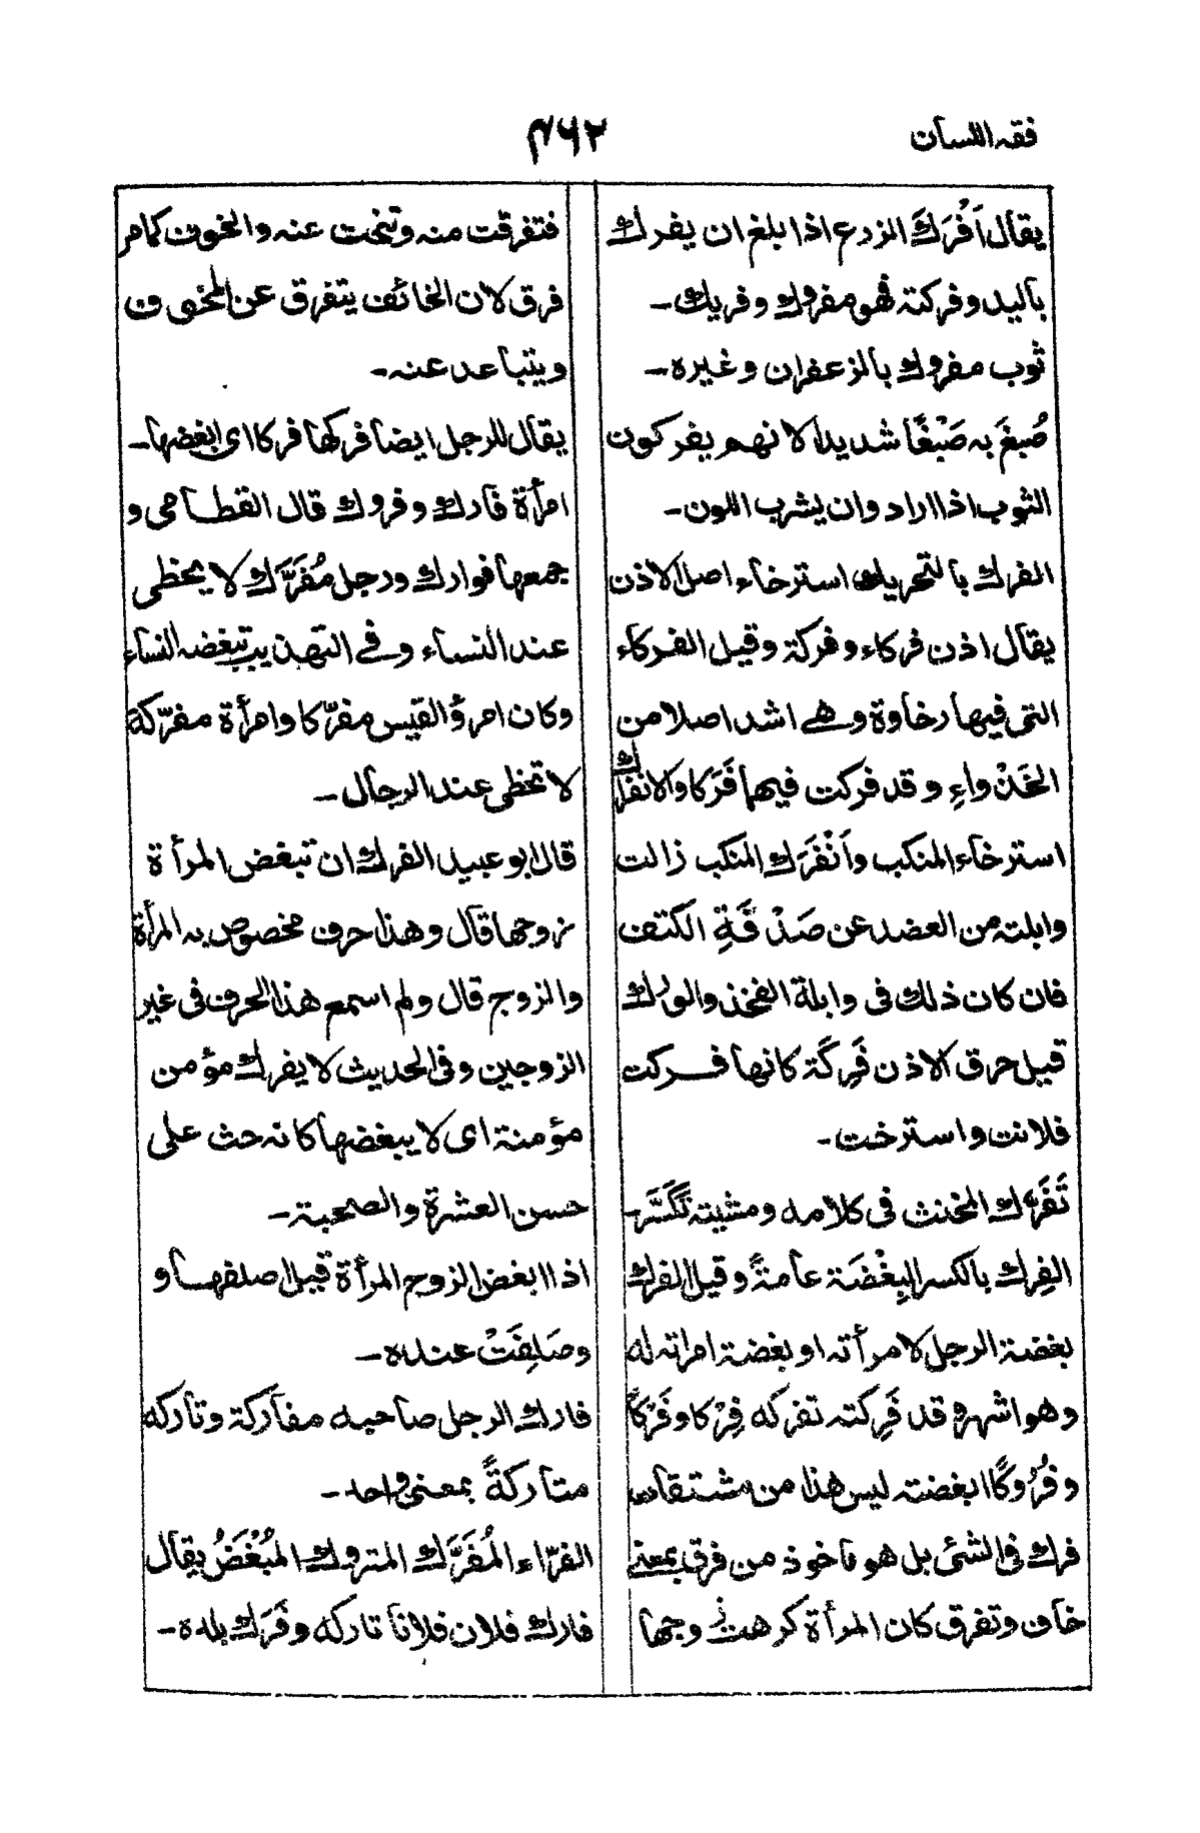 فقه اللسان
۴۶۲
يقال اَفْرَكَ الزرع اذا بلغ ان يفرك
باليد وفركته فهو مفروك وفريك۔
ثوب مفروك بالزعفران وغيره۔
صُبغَ به صَبْغًا شديدا لانهم يفركون
الثوب اذا ارادوان يشرب اللون۔
الفرك بالتحريك استرخاء اصل الاذن
يقال اذن فركاء وفركة وقيل الفركاء
التى فيها رخاوة وهے اشد اصلا من
الخَذْواءِ وقد فركت فيهما فَرَكا والانفراك
استرخاء المنكب واَنْفَرَك المنكب زالت
وابلته من العضد عن صَدْفَةِ الكتف
فان كان ذلك فى وابلة الفخذ والورك
قيل حرق الاذن فَرِكَة كانها فركت
فلانت واسترخت۔
تَفَرَّك المخنث فى كلامه ومشيته تَكَسَّر۔
الفِرك بالكسر البِغْضَة عامةً وقيل الفرك
بغضة الرجل لامرأته او بغضة امراته له
وهو اشهر وقد فَرِكته تفركه فِرْكا وفَرْكاً
وفُرُوكًا ابغضته ليس هذا من مشتقات
فرك فى الشئ بل هو ماخوذ من فرق بمعنے
خاف وتفرق كان المرأة كرهت زوجها
فتفرقت منه وتنخت عنه والخوف كمامر
فرق لان الخائف يتفرق عن المخوف
ويتباعد عنه۔
يقال للرجل ايضا فركها فركا اى ابغضها۔
امرأة فارك وفروك قال القطامى و
جمعها فوارك ورجل مُفَرَّك لا يحظى
عند النساء وفے التهذيب تبغضه النساء
وكان امرؤ القيس مفرّكا وامرأة مفرّكة
لا تحظى عند الرجال۔
قال ابو عبيد الفرك ان تبغض المرأة
زوجها قال وهذا حرف مخصوص به المرأة
والزوج قال ولم اسمع هذا الحرف فى غير
الزوجين وفى الحديث لا يفرك مؤمن
مؤمنة اى لا يبغضها كانه حث على
حسن العشرة والصحبة۔
اذا ابغض الزوج المرأة قيل اصلفها و
وصَلِفَتْ عنده۔
فارك الرجل صاحبه مفاركة وتاركه
متاركةً بمعنى واحد۔
الفرّاء المُفَرَّك المتروك المُبْغَضُ يقال
فارك فلان فلانا تاركه وفَرَك بلده۔